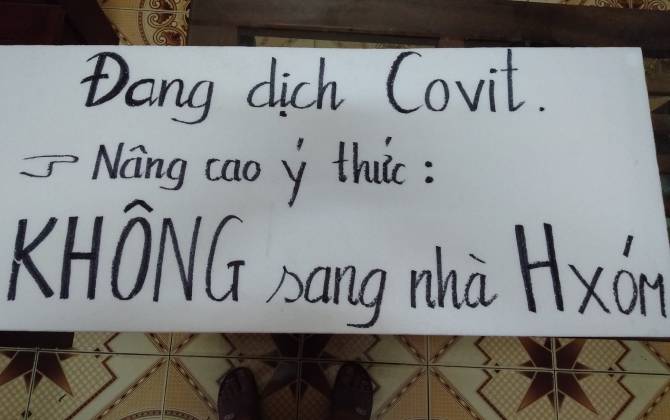 Đang dịch Covit.
☞ Nâng cao ý thức:
KHÔNG sang nhà Hxóm